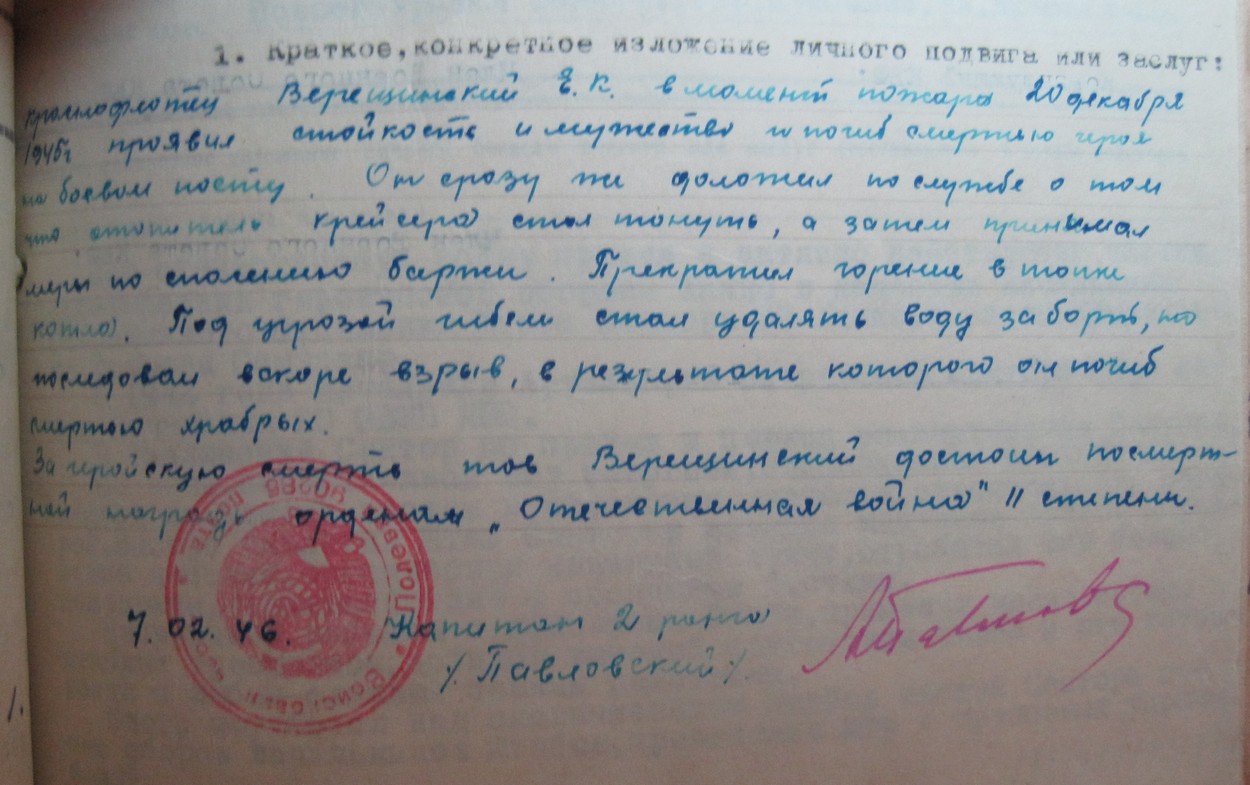 1. Краткое, конкретное изложение личного подвига или заслуг:
краснофлотец Верещинский Е. К. в момент пожара 20 декабря
1945г проявил стойкость и мужество и погиб смертью героя
на боевом посту. Он сразу же доложил по службе о том
что отопитель крейсера стал тонуть, а затем принимал
меры по спасению баржи. Прекратил горение в топке
котла. Под угрозой гибели стал удалять воду за борть, но
последовал вскоре взрыв, в результате которого он погиб
смертью храбрых.
За геройскую смерть тов Верещинский достоин посмерт-
ной награды орденом „Отечественная война" II степени.
7.02.46. Капитан 2 ранга
/. Павловский /.
90286
1.